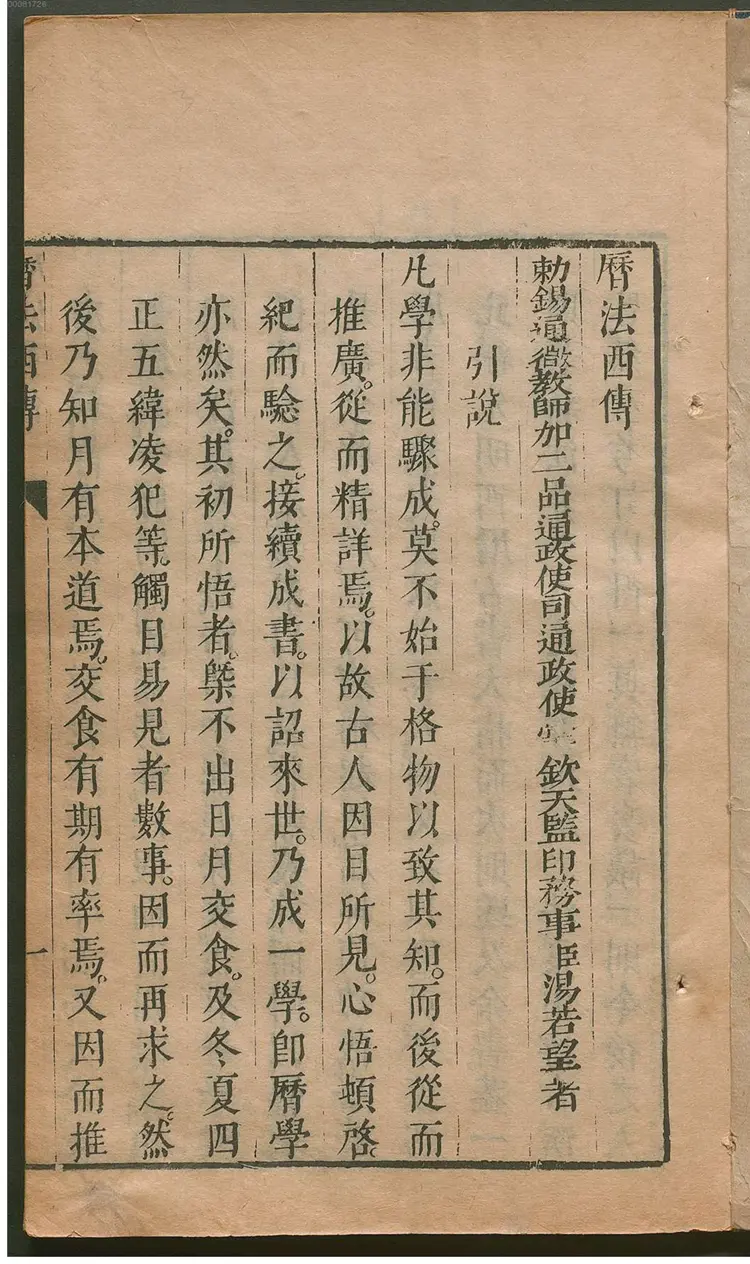 00081726
曆法西傳
勅錫通微教師加二品通政使司通政使掌欽天監印務事臣湯若望者
引說
凡學非能驟成。莫不始于格物以致其知。而後從而
推廣。從而精詳焉。以故古人因目所見。心悟頓啓。
紀而驗之。接續成書。以詔來世。乃成一學。卽曆學
亦然矣。其初所悟者。槩不出日月交食。及冬夏四
正五緯凌犯等。觸目易見者數事。因而再求之。然
後乃知月有本道焉。交食有期有率焉。又因而推
曆法西傳
一